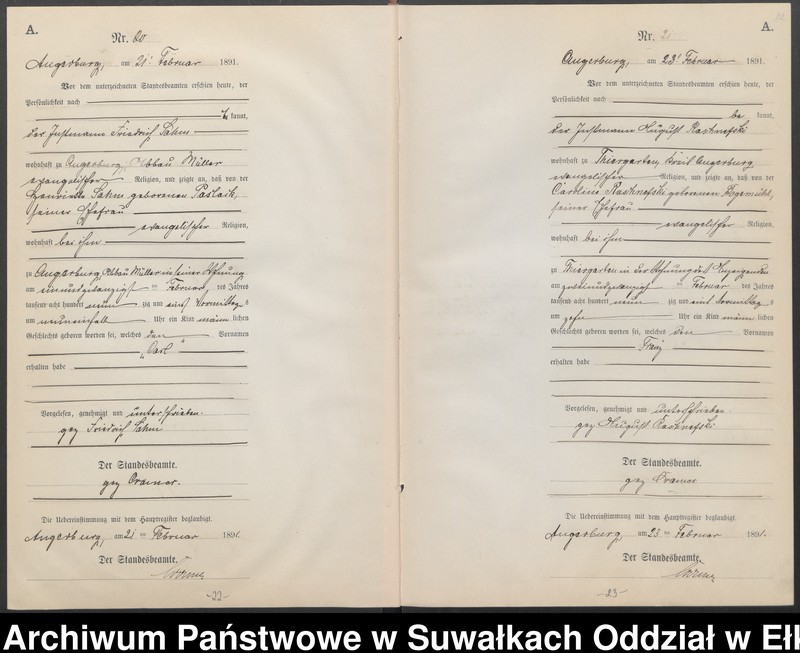 A.
Nr. 20
Angerburg, am 21. Februar 1891.
Vor dem unterzeichneten Standesbeamten erschien heute, der
Persönlichkeit nach
kannt,
der Instmann Friedrich Sahm
wohnhaft zu Angerburg, Abbau Müller
evangelischer Religion, und zeigte an, daß von der
Henriette Sahm geborenen
seiner Ehefrau
evangelischer Religion,
wohnhaft bei ihm
zu Angerburg, Abbau Müller in seiner Wohnung
am einundzwanzigsten Februar, des Jahres
tausend acht hundert neun zig und eins Vormittags
um neuneinhalb Uhr ein Kind männlichen
Geschlechts geboren worden sei, welches den Vornamen
„Carl"
erhalten habe
Vorgelesen, genehmigt und unterschrieben.
gez Friedrich Sahm
Der Standesbeamte.
gez Cramer.
Die Uebereinstimmung mit dem Hauptregister beglaubigt.
Angerburg, am 21 ten Februar 1891.
Der Standesbeamte.
-22-
A.
Nr. 21
Angerburg, am 23. Februar 1891.
Vor dem unterzeichneten Standesbeamten erschien heute, der
Persönlichkeit nach
be kannt,
der Instmann August
wohnhaft zu Thiergarten, Kreis Angerburg
evangelischer Religion, und zeigte an, daß von der
Caroline geborenen
seiner Ehefrau
evangelischer Religion,
wohnhaft bei ihm
zu Thiergarten in der Wohnung des Anzeigenden
am zweiundzwanzigsten Februar des Jahres
tausend acht hundert neun zig und eins Vormittags
um zehn Uhr ein Kind männlichen
Geschlechts geboren worden sei, welches den Vornamen
Franz
erhalten habe
Vorgelesen, genehmigt und unterschrieben
gez August
Der Standesbeamte.
gez Cramer
Die Uebereinstimmung mit dem Hauptregister beglaubigt.
Angerburg, am 23 ten Februar 1891.
Der Standesbeamte.
-23-
Archiwum Państwowe w Suwałkach Oddział w Ełk